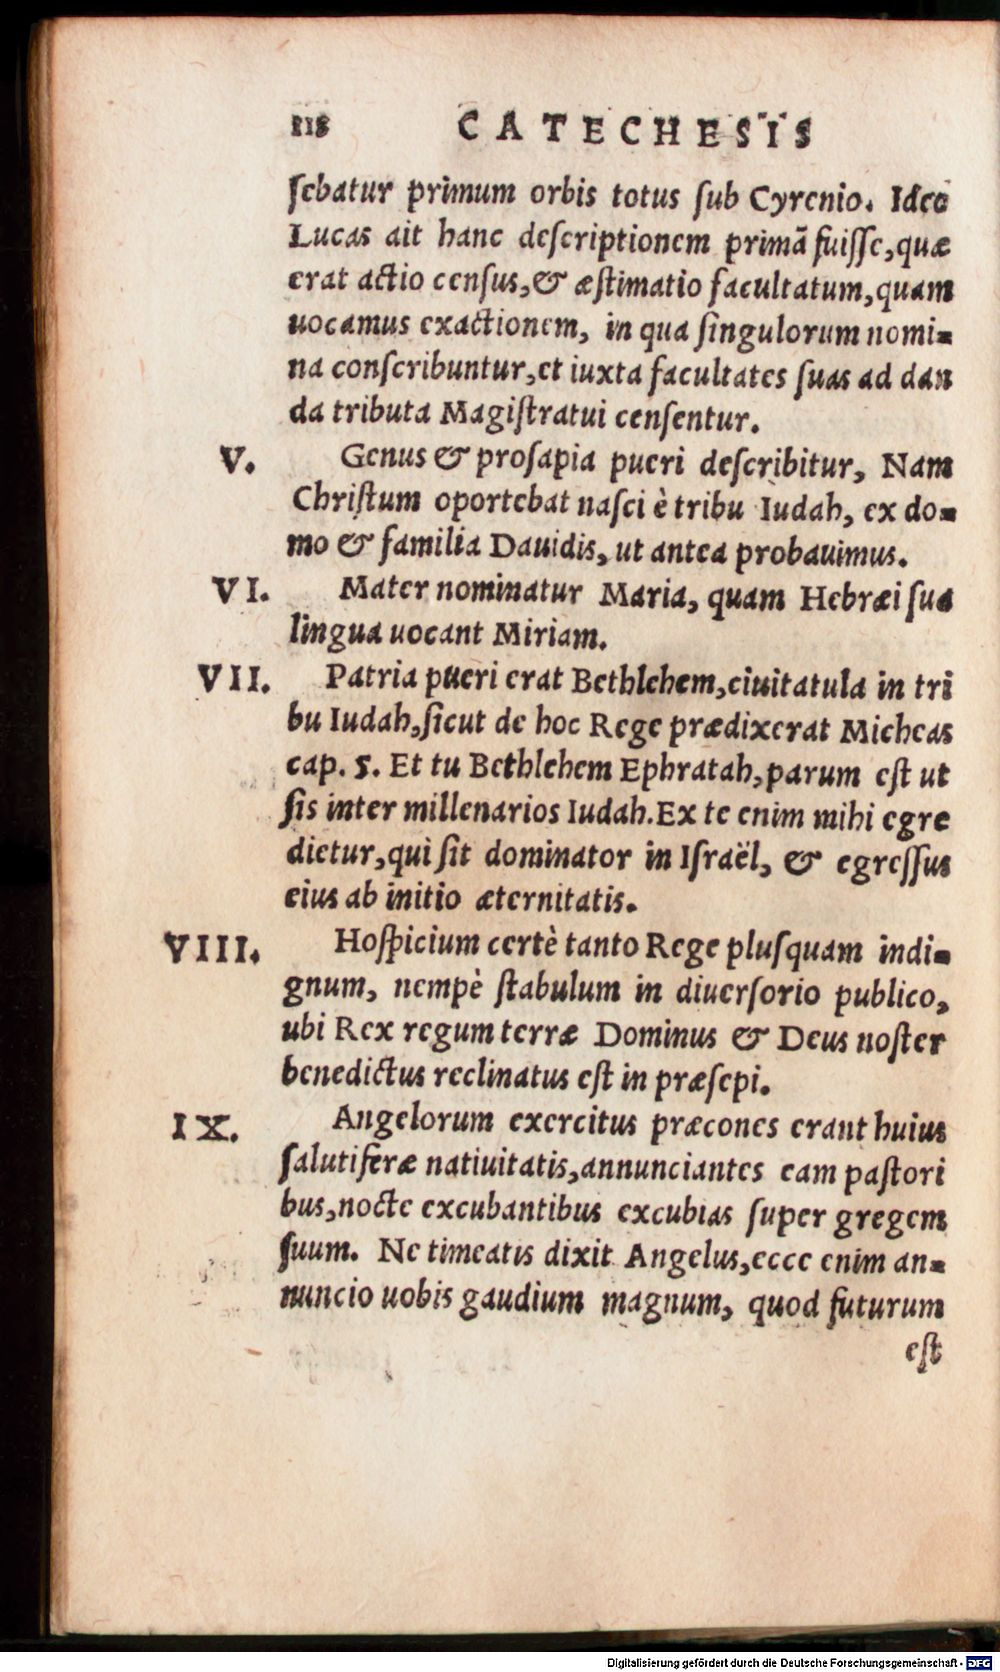 118 CATECHESIS
ſebatur primum orbis totus ſub Cyrenio. Ideo
Lucas ait hanc deſcriptionem primã fuiſſe, quæ
erat actio cenſus, & æſtimatio facultatum, quam
uocamus exactionem, in qua ſingulorum nomi=
na conſcribuntur, et iuxta facultates ſuas ad dan
da tributa Magiſtratui cenſentur.
V. Genus & proſapia pueri deſcribitur, Nam
Chriſtum oportebat naſci è tribu Iudah, ex do=
mo & familia Dauidis, ut antea probauimus.
VI. Mater nominatur Maria, quam Hebræi ſua
lingua uocant Miriam.
VII. Patria pueri erat Bethlehem, ciuitatula in tri
bu Iudah, ſicut de hoc Rege prædixerat Micheas
cap. 5. Et tu Bethlehem Ephratah, parum eſt ut
ſis inter millenarios Iudah. Ex te enim mihi egre
dietur, qui ſit dominator in Iſraël, & egreſſus
eius ab initio æternitatis.
VIII. Hoſpicium certè tanto Rege pluſquam indi=
gnum, nempè ſtabulum in diuerſorio publico,
ubi Rex regum terræ Dominus & Deus noſter
benedictus reclinatus eſt in præſepi.
IX. Angelorum exercitus præcones erant huius
ſalutiferæ natiuitatis, annunciantes eam paſtori
bus, nocte excubantibus excubias ſuper gregem
ſuum. Ne timeatis dixit Angelus, ecce enim an=
nuncio uobis gaudium magnum, quod futurum
eſt
Digitalisierung gefördert durch die Deutsche Forschungsgemeinschaft - DFG